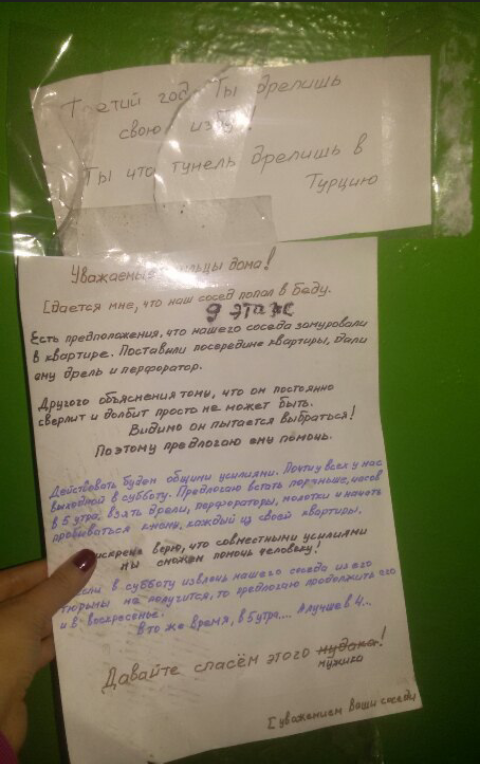 Третий год Ты дрелишь
свою избу!
Ты что тунель дрелишь в
Турцию
Уважаемые жильцы дома!
Сдается мне, что наш сосед попал в беду.
9 ЭТАЖ
Есть предположения, что нашего соседа замуровали
в квартире. Поставили посередине квартиры, дали
ему дрель и перфоратор.
Другого объяснения тому, что он постоянно
сверлит и долбит просто не может быть.
Видимо он пытается выбраться!
Поэтому предлогаю ему помочь.
Действовать будем общими усилиями. Почти у всех у нас
выходной в субботу. Предлогаю встать пораньше, часов
в 5 утра, взять дрели, перфораторы, молотки и начать
пробиваться к нему, каждый из своей квартиры.
искрене верю, что совместными усилиями
мы сможем помочь человеку!
если в субботу извлечь нашего соседа из его
тюрьмы не получится, то предлогаю продолжить это
и в воскресенье.
В то же время, в 5 утра.... А лучше в 4...
Давайте спасём этого мудака!
мужика
С уважением Ваши соседи